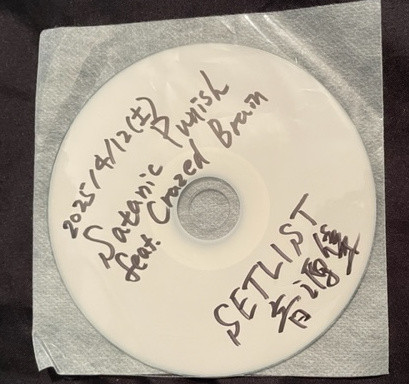 2025/4/12(土)
Satanic Punish
feat Crazed Brain
SETLIST